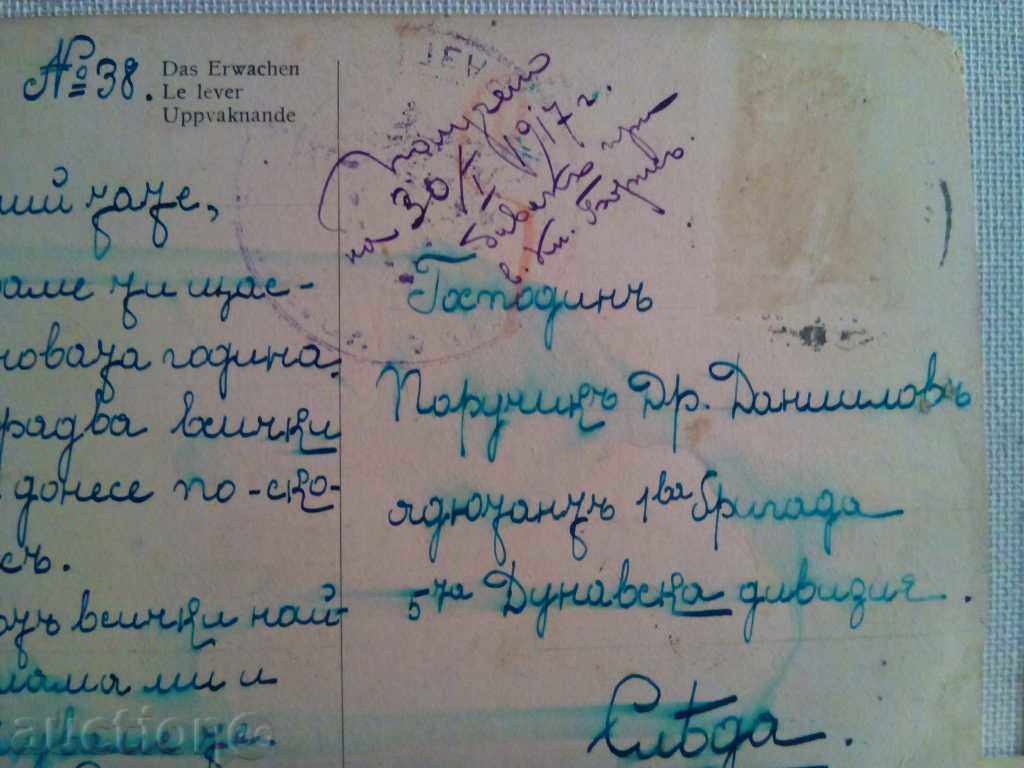 № 38.
Das Erwachen
Le lever
Uppvaknande
получено
на 30/I 1917 г.
бивакъ при
с. Кн. Борисъ.
ший тате,
раме ти щас-
новата година.
радва всички
донесе по-ско-
съ.
отъ всички най-
мама ми и
Господинъ
Поручикъ Др. Даниловъ
ядютантъ 1ва бригада
5та Дунавска дивизия.
Слѣда.
auction